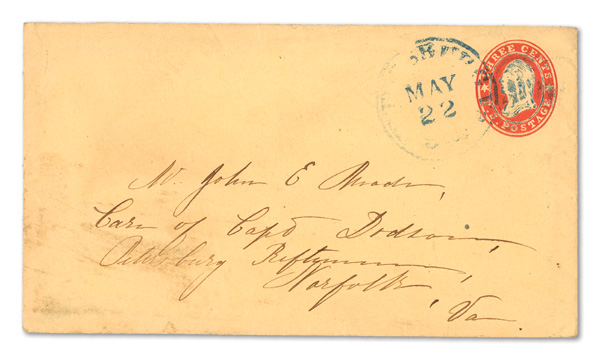 MAY
22
THREE CENTS
U.S. POSTAGE
Mr John E Rhodes,
Care of Capt Dodson,
Petersburg Riflemen,
Norfolk,
Va